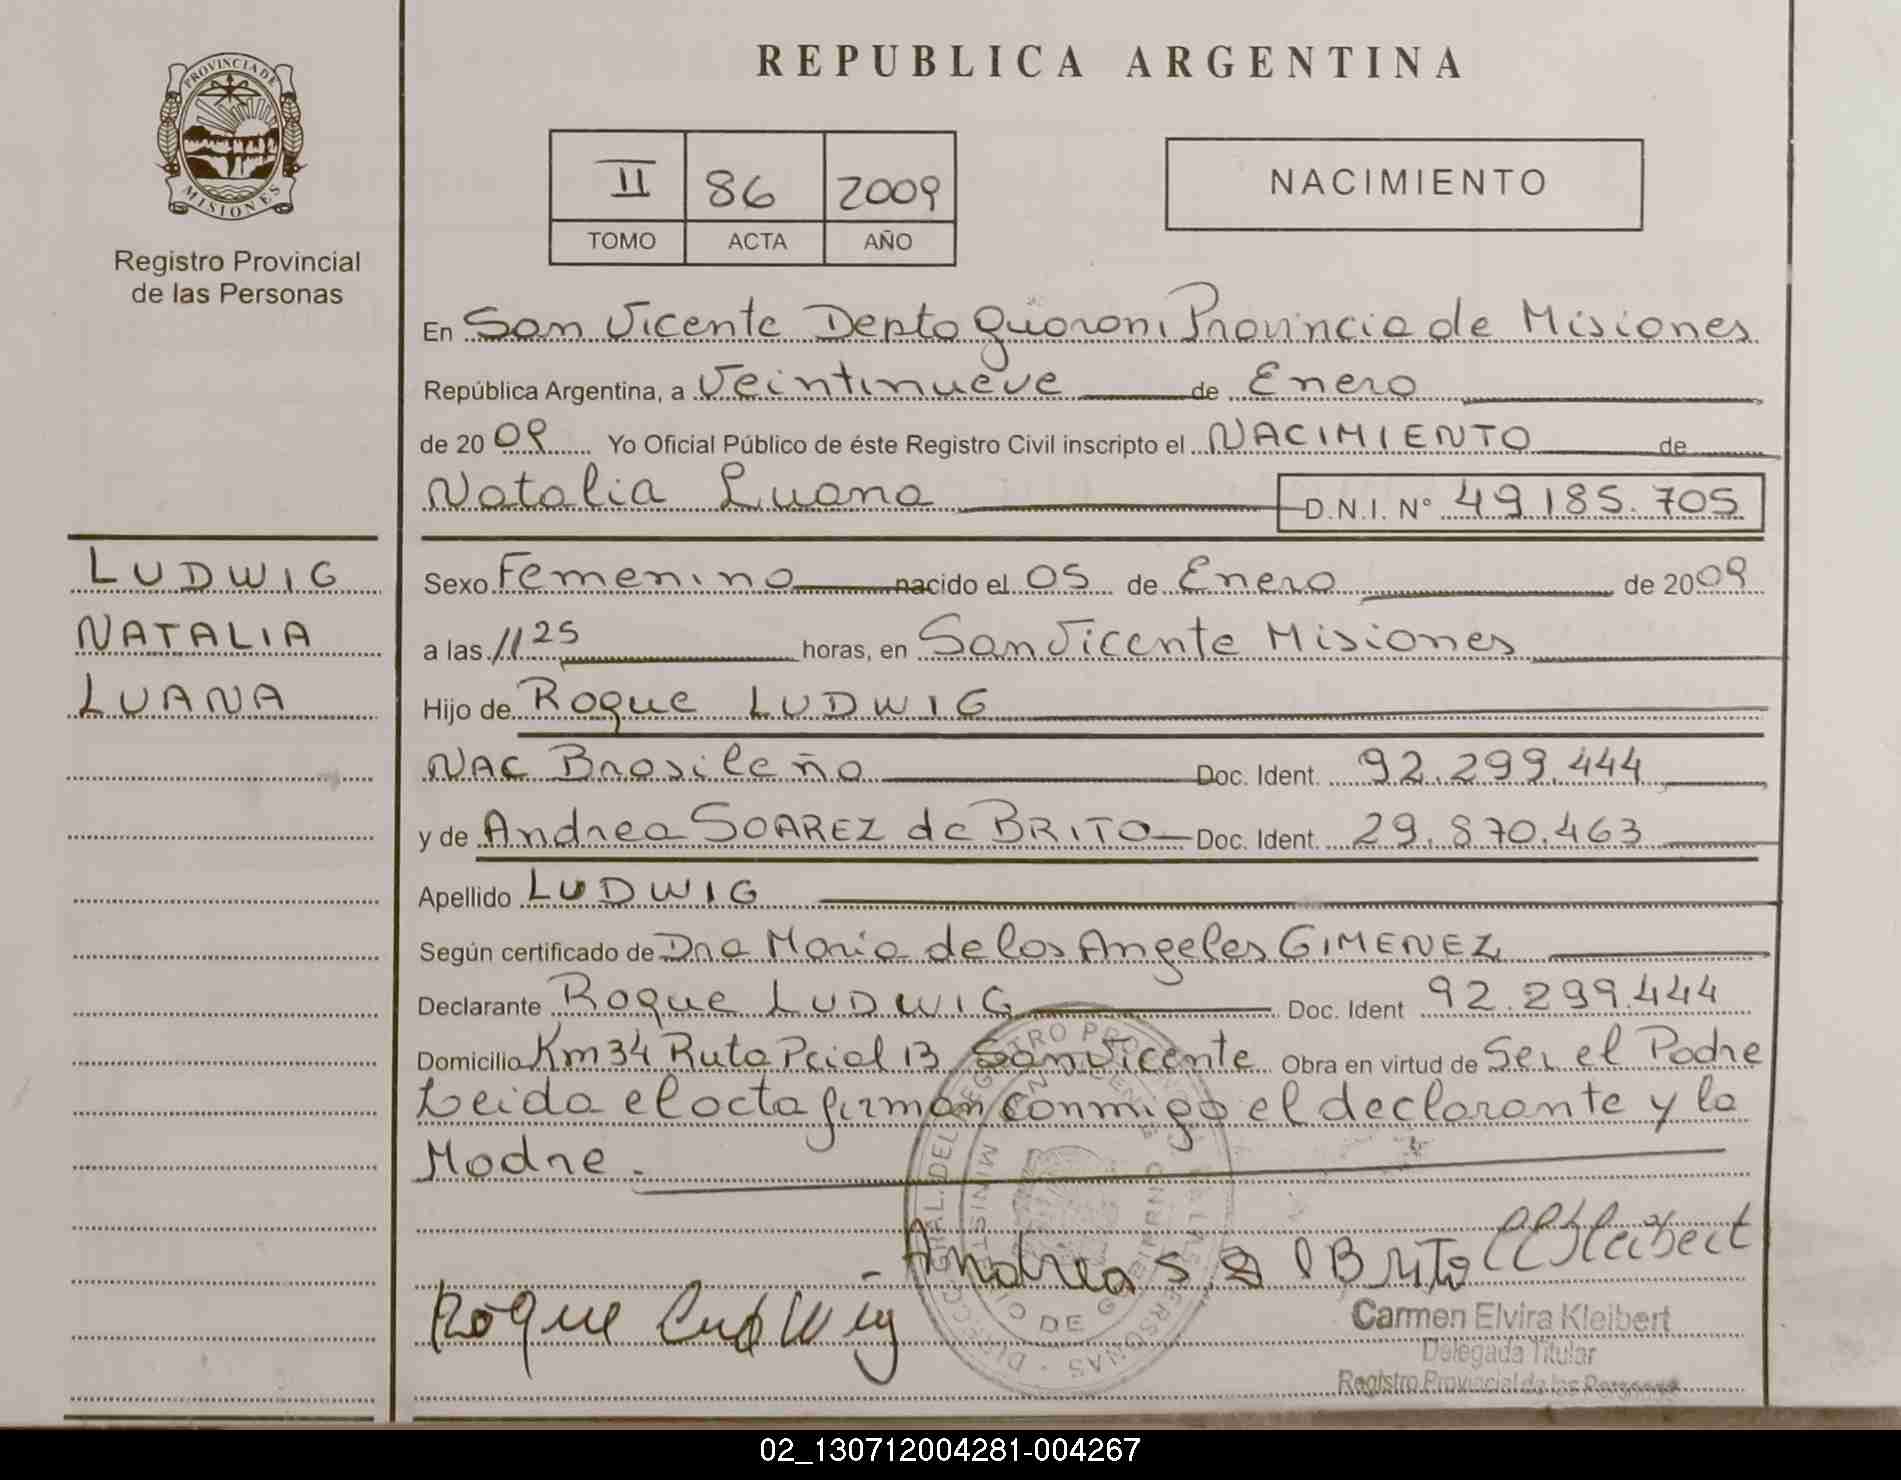 PROVINCIA DE
MISIONES
Registro Provincial
de las Personas
LUDWIG
NATALIA
LUANA
REPUBLICA ARGENTINA
II 86 2009
TOMO ACTA AÑO
NACIMIENTO
En San Vicente Depto Guarani Provincia de Misiones
República Argentina, a Veintinueve de Enero
de 2009 Yo Oficial Público de éste Registro Civil inscripto el NACIMIENTO de
Natalia Luana D.N.I. N° 49.185.705
Sexo Femenino nacido el 05 de Enero de 2009
a las 11 25 horas, en San Vicente Misiones
Hijo de Roque LUDWIG
NAC Brasileño Doc. Ident. 92.299.444
y de Andrea SOAREZ de BRITO Doc. Ident. 29.870.463
Apellido LUDWIG
Según certificado de Dra Maria de los Angeles GIMENEZ
Declarante Roque LUDWIG Doc. Ident 92.299.444
Domicilio Km 34 Ruta Pcial 13 San Vicente Obra en virtud de Ser el Padre
Leida el acta firman conmigo el declarante y la
Madre.
Roque Ludwig
Carmen Elvira Kleibert
Delegada Titular
Registro Provincial de las Personas
02_130712004281-004267